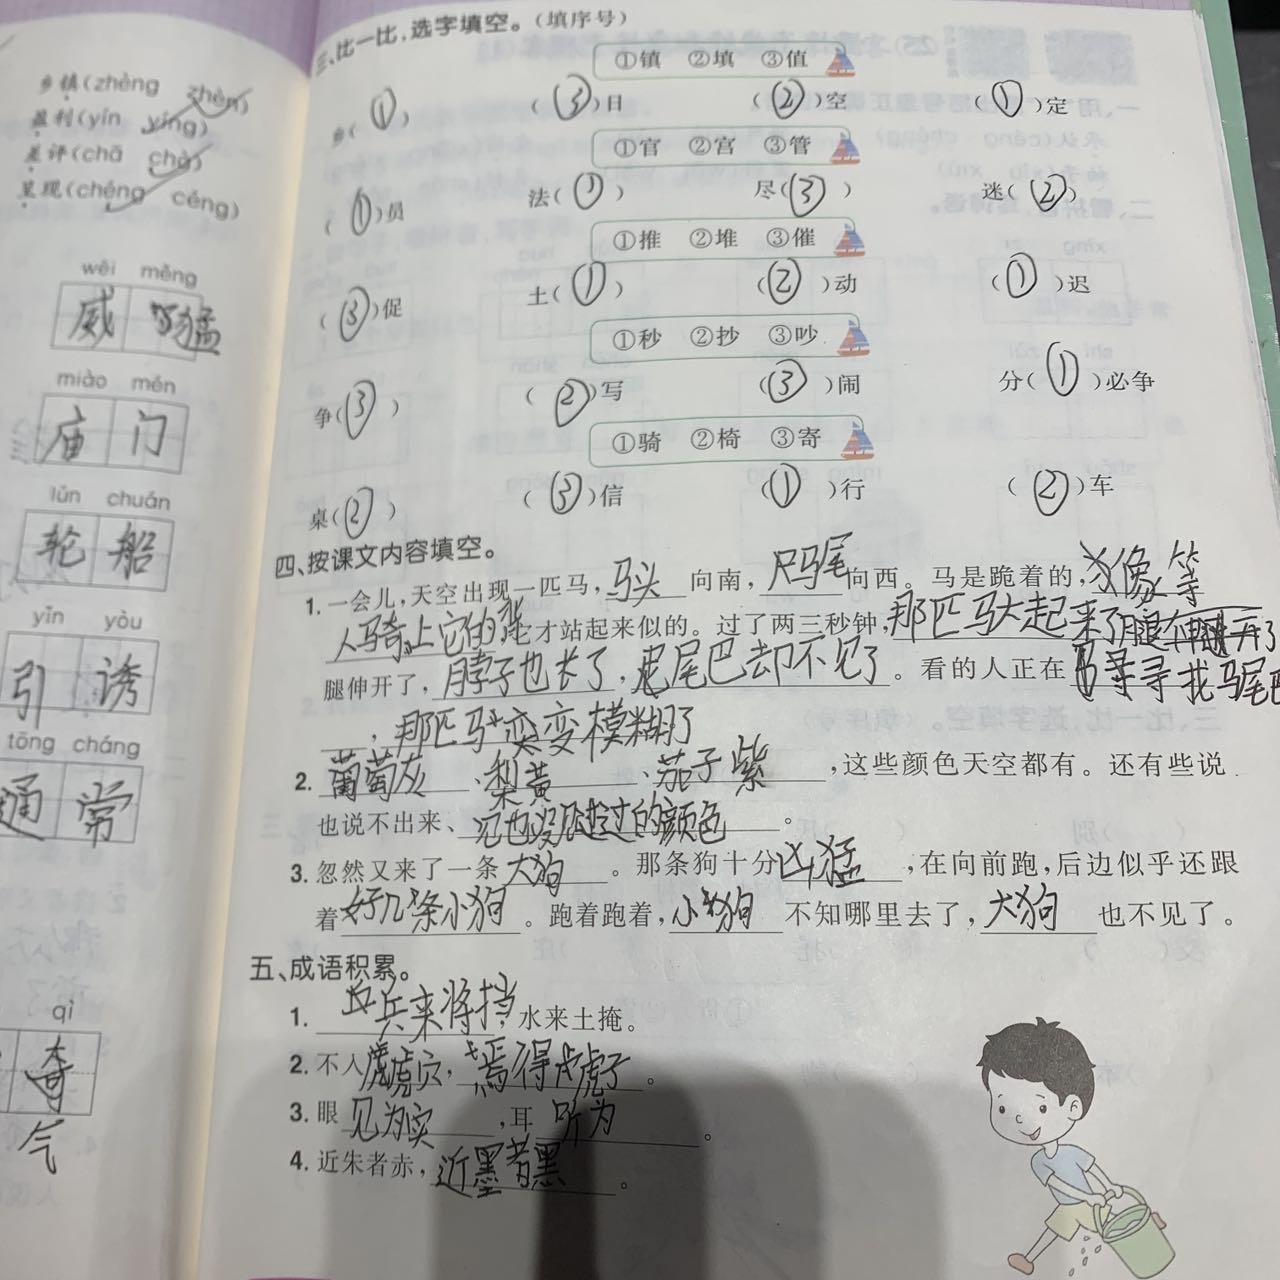 乡镇(zhèng zhèn)
盈利(yín yíng)
差评(chā chà)
呈现(chéng céng)
wēi měng
威猛
miào mén
庙门
lún chuán
轮船
yǐn yòu
引诱
tōng cháng
通常
qì
奇
气
三、比一比,选字填空。(填序号)
①镇 ②填 ③值
乡(①) (③)日 (②)空 (①)定
①官 ②宫 ③管
(①)员 法(①) 尽(③) 迷(②)
①推 ②堆 ③催
(③)促 土(①) (②)动 (①)迟
①秒 ②抄 ③吵
争(③) (②)写 (③)闹 分(①)必争
①骑 ②椅 ③寄
桌(②) (③)信 (①)行 (②)车
四、按课文内容填空。
1. 一会儿,天空出现一匹马,马头向南,马尾向西。马是跪着的,像等
人骑上它的背它才站起来似的。过了两三秒钟,那匹马大起来了腿伸开了
腿伸开了,脖子也长了,尾巴却不见了。看的人正在寻找马尾巴
,那匹马变模糊了
2. 葡萄灰、梨黄、茄子紫,这些颜色天空都有。还有些说
也说不出来、见也没见过的颜色。
3. 忽然又来了一条大狗。那条狗十分凶猛,在向前跑,后边似乎还跟
着好几条小狗。跑着跑着,小狗不知哪里去了,大狗也不见了。
五、成语积累。
1. 兵来将挡,水来土掩。
2. 不入虎穴,焉得虎子。
3. 眼见为实,耳听为。
4. 近朱者赤,近墨者黑。